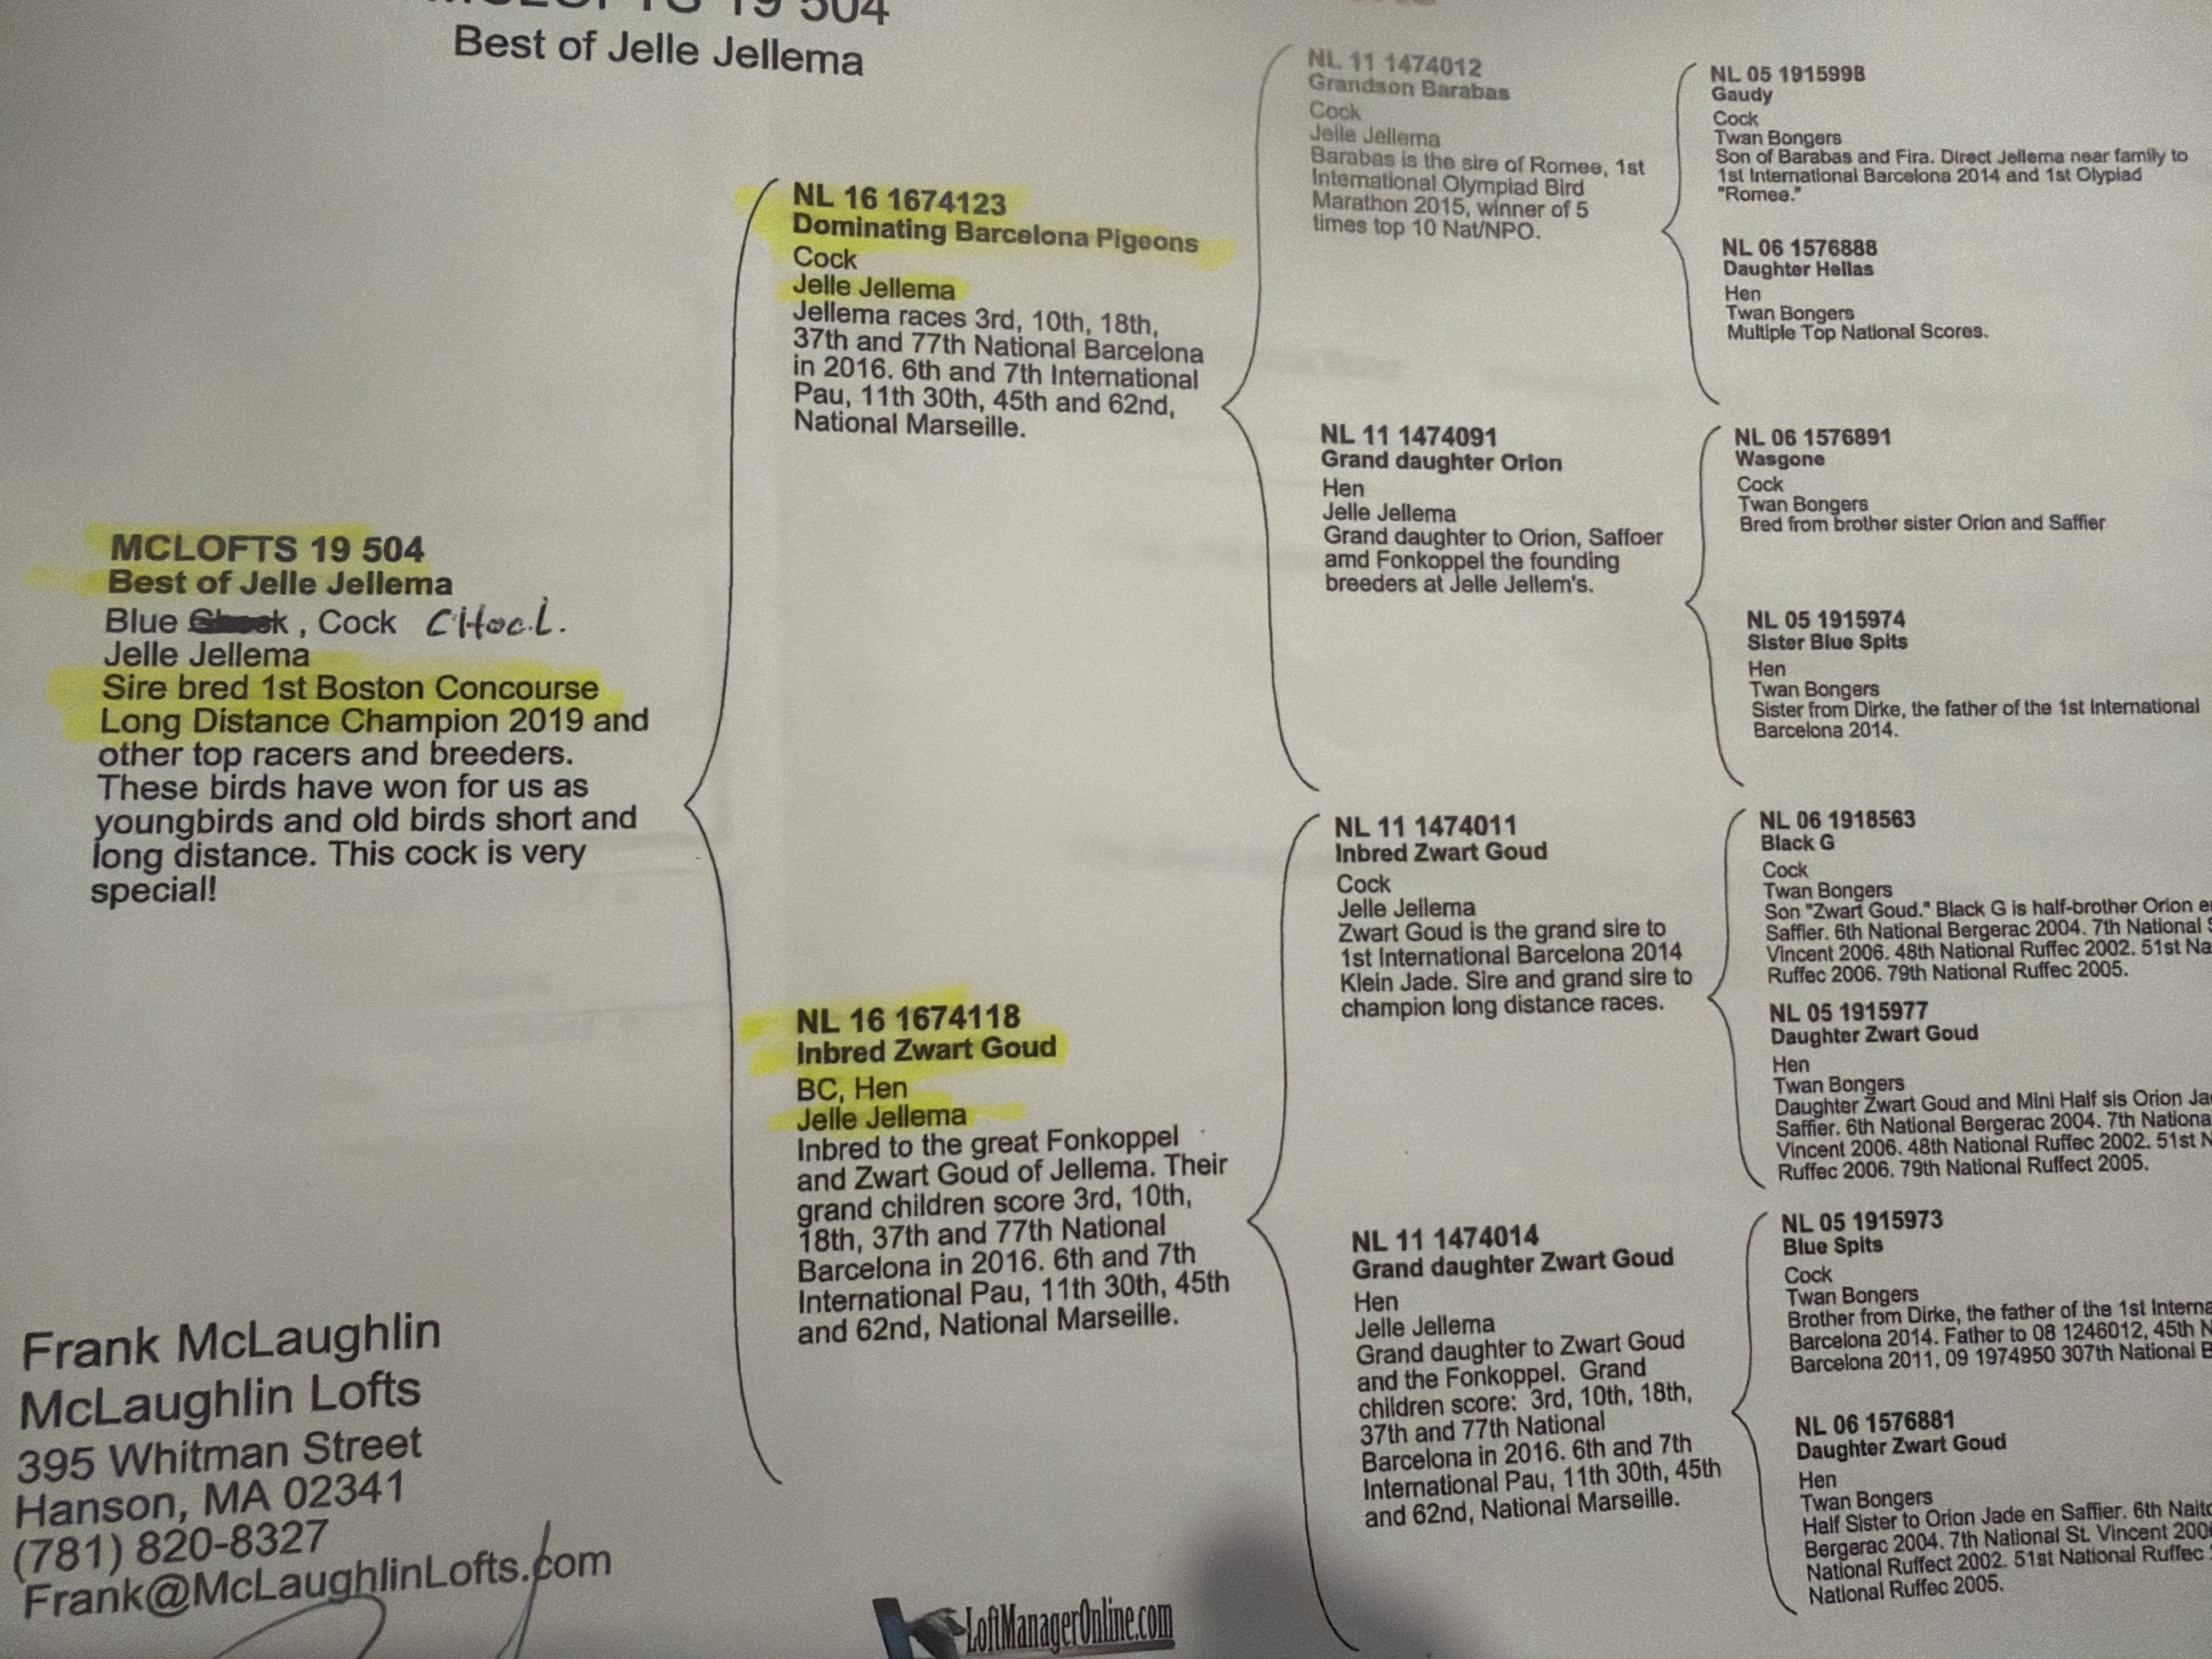 MCLOFTS 19 504
Best of Jelle Jellema
MCLOFTS 19 504
Best of Jelle Jellema
Blue , Cock CHoc.
Jelle Jellema
Sire bred 1st Boston Concourse
Long Distance Champion 2019 and
other top racers and breeders.
These birds have won for us as
youngbirds and old birds short and
long distance. This cock is very
special!
Frank McLaughlin
McLaughlin Lofts
395 Whitman Street
Hanson, MA 02341
(781) 820-8327
Frank@McLaughlinLofts.com
NL 16 1674123
Dominating Barcelona Pigeons
Cock
Jelle Jellema
Jellema races 3rd, 10th, 18th,
37th and 77th National Barcelona
in 2016. 6th and 7th International
Pau, 11th 30th, 45th and 62nd,
National Marseille.
NL 16 1674118
Inbred Zwart Goud
BC, Hen
Jelle Jellema
Inbred to the great Fonkoppel
and Zwart Goud of Jellema. Their
grand children score 3rd, 10th,
18th, 37th and 77th National
Barcelona in 2016. 6th and 7th
International Pau, 11th 30th, 45th
and 62nd, National Marseille.
LoftManagerOnline.com
NL 11 1474012
Grandson Barabas
Cock
Jelle Jellema
Barabas is the sire of Romee, 1st
International Olympiad Bird
Marathon 2015, winner of 5
times top 10 Nat/NPO.
NL 11 1474091
Grand daughter Orion
Hen
Jelle Jellema
Grand daughter to Orion, Saffoer
amd Fonkoppel the founding
breeders at Jelle Jellem's.
NL 11 1474011
Inbred Zwart Goud
Cock
Jelle Jellema
Zwart Goud is the grand sire to
1st International Barcelona 2014
Klein Jade. Sire and grand sire to
champion long distance races.
NL 11 1474014
Grand daughter Zwart Goud
Hen
Jelle Jellema
Grand daughter to Zwart Goud
and the Fonkoppel. Grand
children score: 3rd, 10th, 18th,
37th and 77th National
Barcelona in 2016. 6th and 7th
International Pau, 11th 30th, 45th
and 62nd, National Marseille.
NL 05 1915998
Gaudy
Cock
Twan Bongers
Son of Barabas and Fira. Direct Jellema near family to
1st International Barcelona 2014 and 1st Olypiad
"Romee."
NL 06 1576888
Daughter Hellas
Hen
Twan Bongers
Multiple Top National Scores.
NL 06 1576891
Wasgone
Cock
Twan Bongers
Bred from brother sister Orion and Saffier
NL 05 1915974
Sister Blue Spits
Hen
Twan Bongers
Sister from Dirke, the father of the 1st International
Barcelona 2014.
NL 06 1918563
Black G
Cock
Twan Bongers
Son "Zwart Goud." Black G is half-brother Orion e
Saffier. 6th National Bergerac 2004. 7th National S
Vincent 2006. 48th National Ruffec 2002. 51st Na
Ruffec 2006. 79th National Ruffec 2005.
NL 05 1915977
Daughter Zwart Goud
Hen
Twan Bongers
Daughter Zwart Goud and Mini Half sis Orion Ja
Saffier. 6th National Bergerac 2004. 7th Nationa
Vincent 2006. 48th National Ruffec 2002. 51st N
Ruffec 2006. 79th National Ruffect 2005.
NL 05 1915973
Blue Spits
Cock
Twan Bongers
Brother from Dirke, the father of the 1st Interna
Barcelona 2014. Father to 08 1246012, 45th N
Barcelona 2011, 09 1974950 307th National B
NL 06 1576881
Daughter Zwart Goud
Hen
Twan Bongers
Half Sister to Orion Jade en Saffier. 6th Naito
Bergerac 2004. 7th National St. Vincent 200
National Ruffect 2002. 51st National Ruffec
National Ruffec 2005.